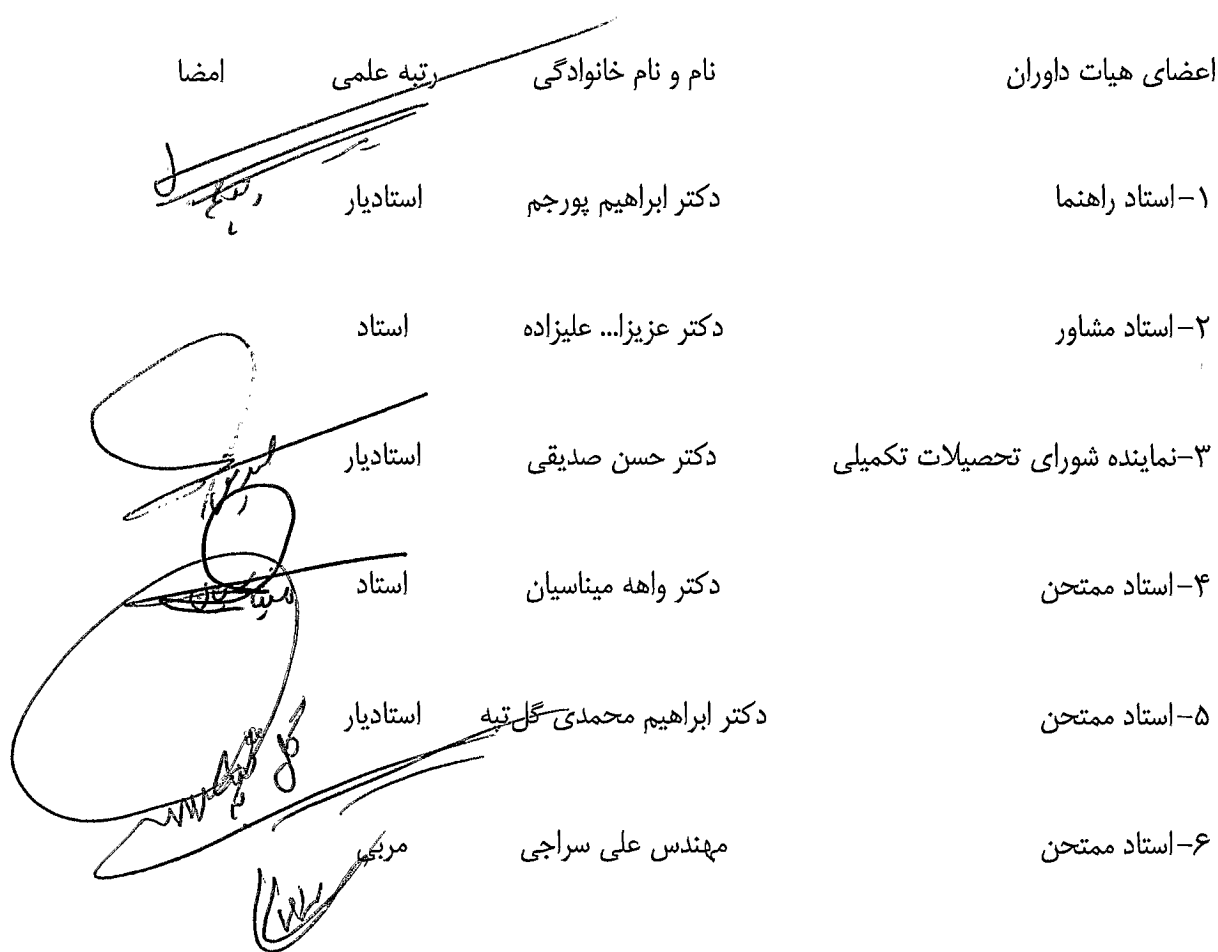 اعضای هیات داوران نام و نام خانوادگی رتبه علمی امضا
۱-استاد راهنما دکتر ابراهیم پورجم استادیار
۲-استاد مشاور دکتر عزیزا... علیزاده استاد
۳-نماینده شورای تحصیلات تکمیلی دکتر حسن صدیقی استادیار
۴-استاد ممتحن دکتر واهه میناسیان استاد
۵-استاد ممتحن دکتر ابراهیم محمدی گل‌تپه استادیار
۶-استاد ممتحن مهندس علی سراجی مربی